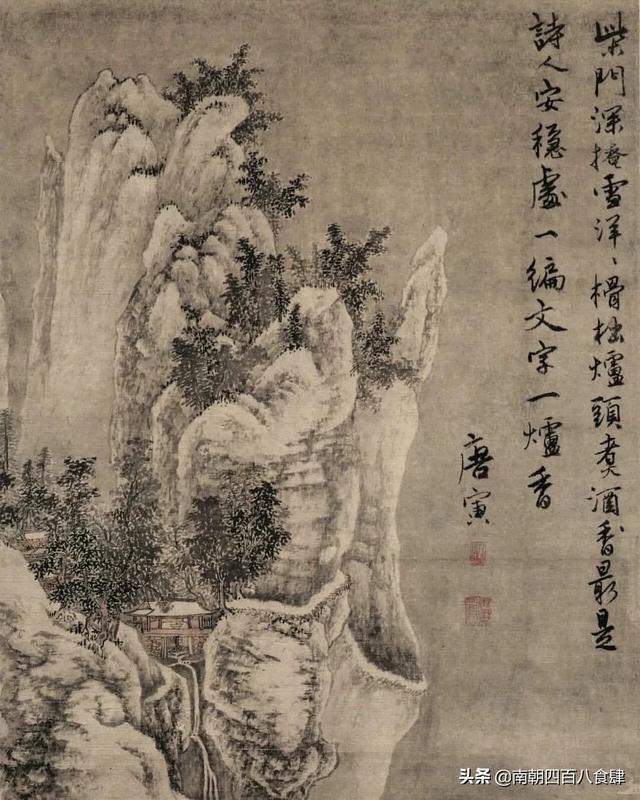 柴門深掩雪洋〻榾柮爐頭煑酒香最是
詩人安穩處一編文字一爐香
唐寅
头条 @南朝四百八食肆